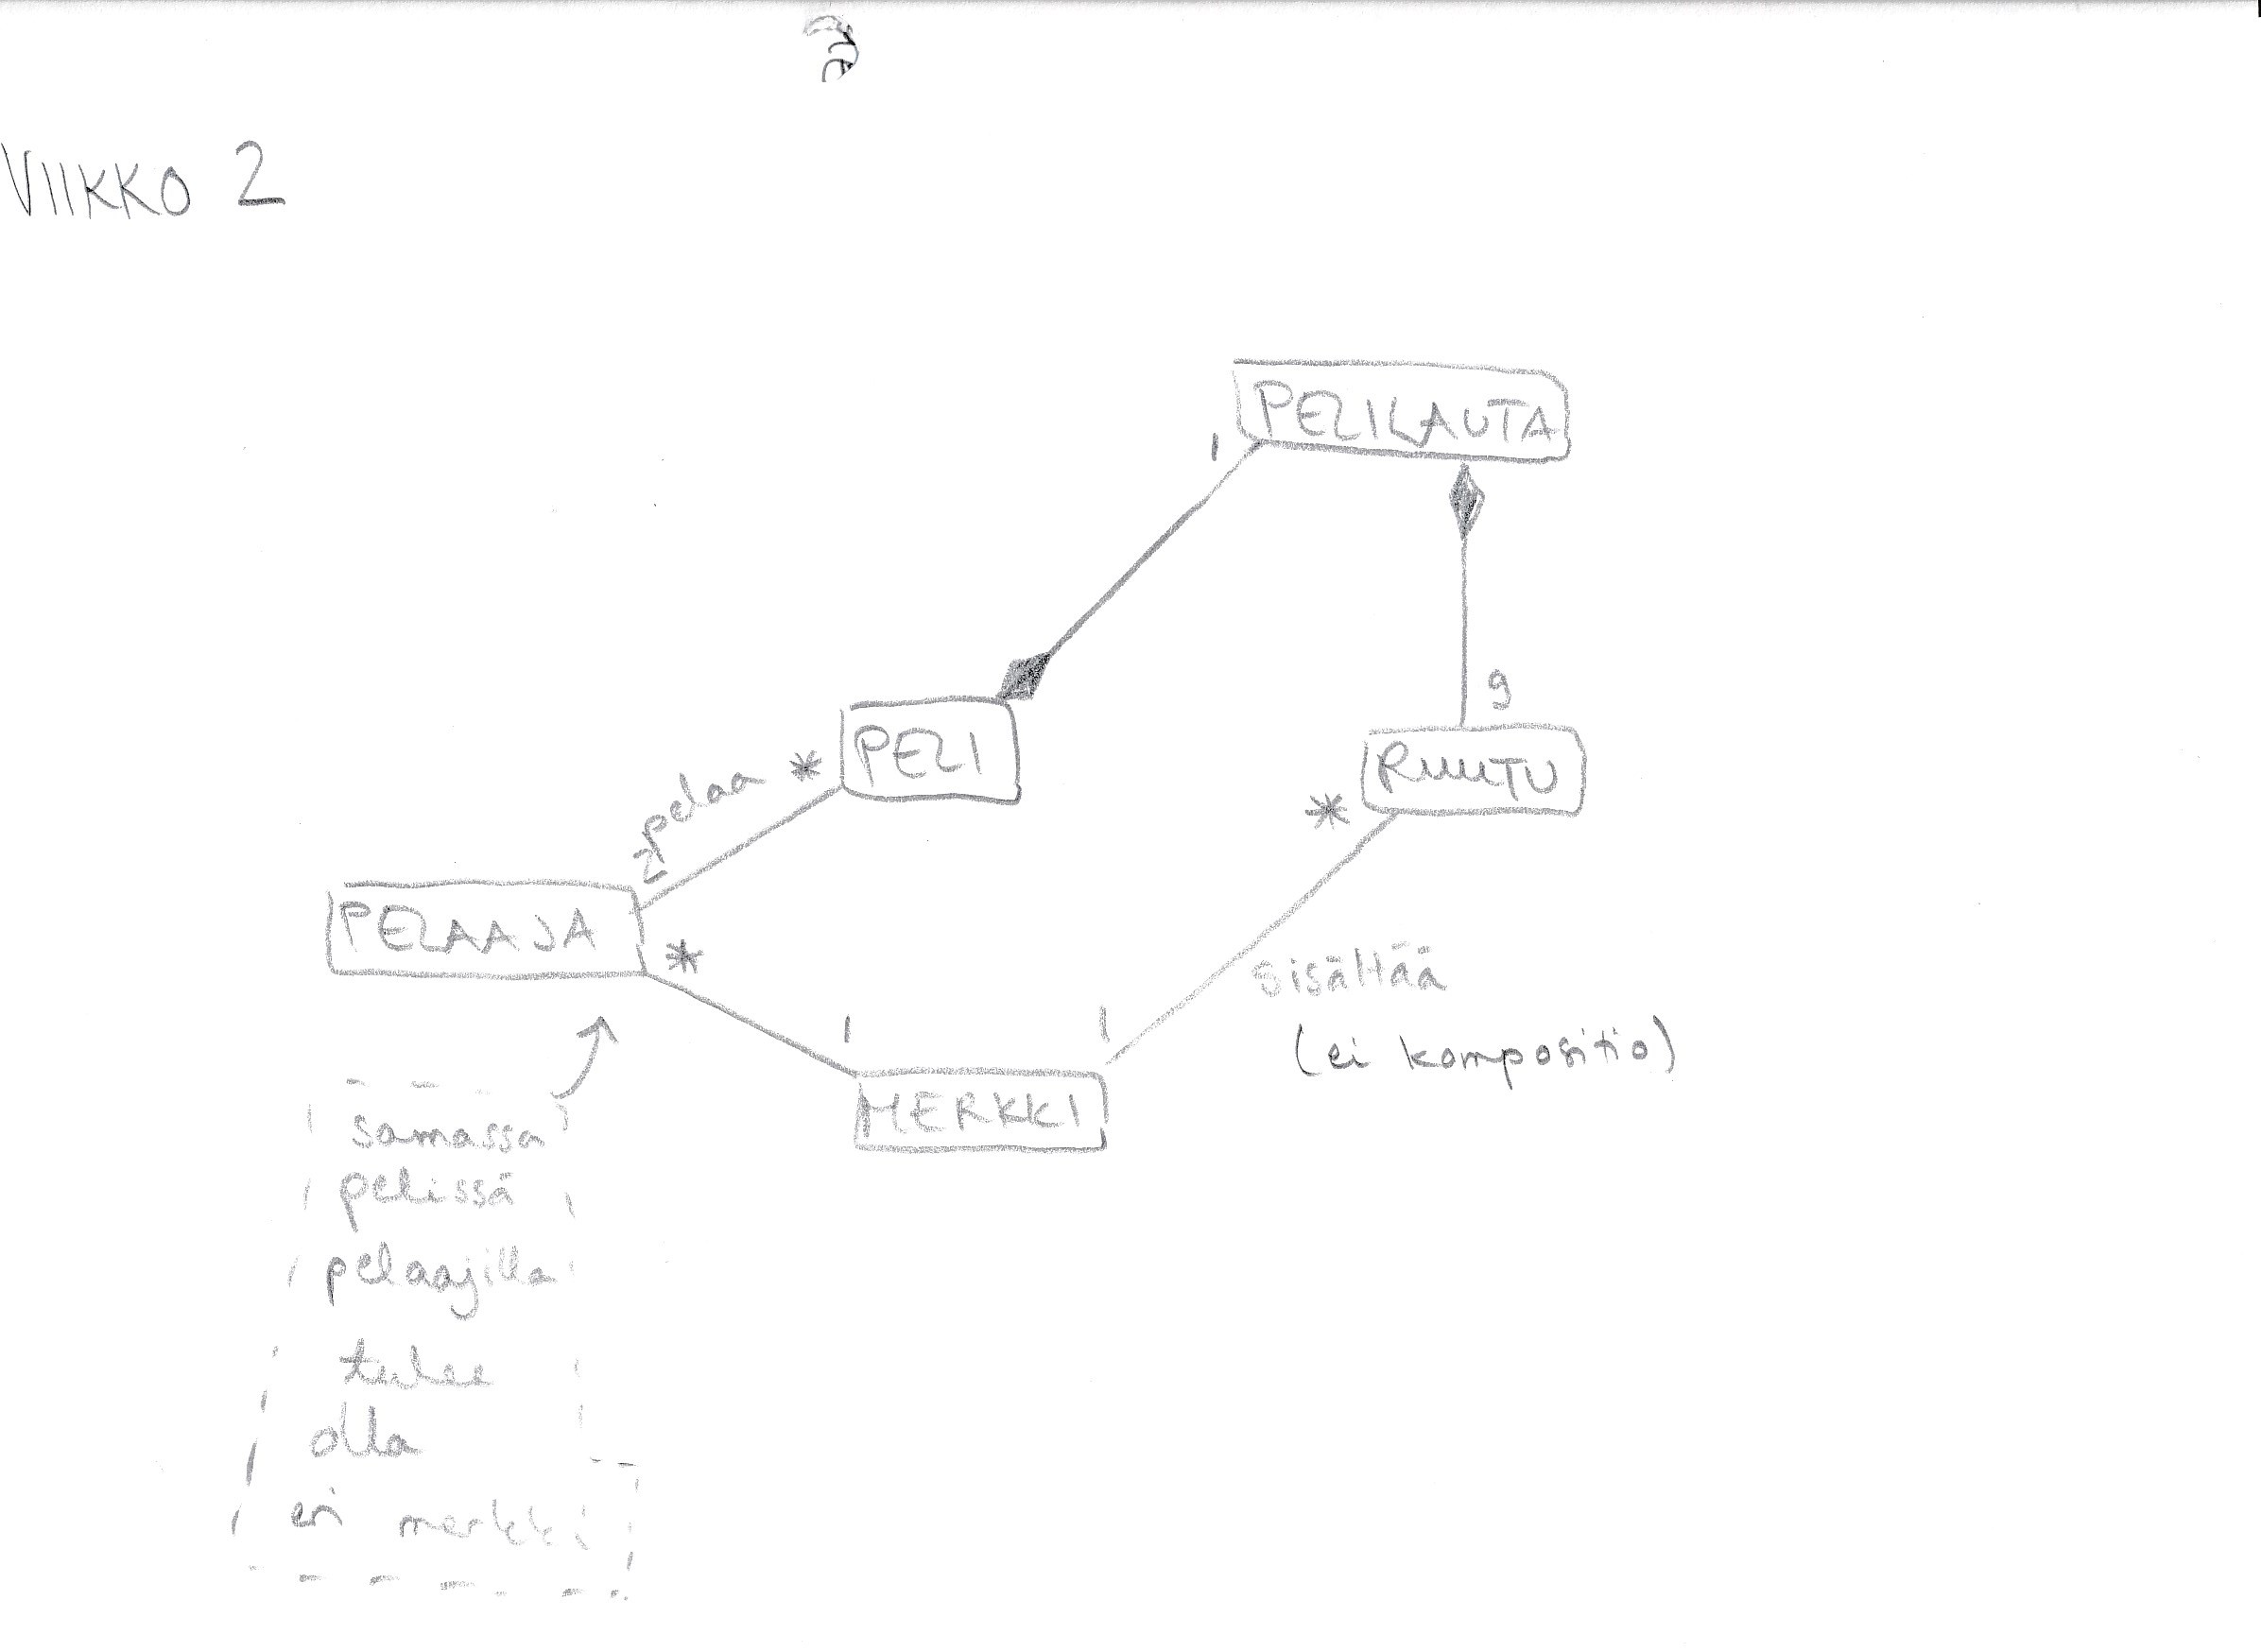 VIIKKO 2
PELILAUTA
1
9
PELI
*
pelaa
2
RUUTU
*
PELAAJA
*
sisältää
(ei kompositio)
1
1
MERKKI
samassa
pelissä
pelaajilla
tulee
olla
eri merkki